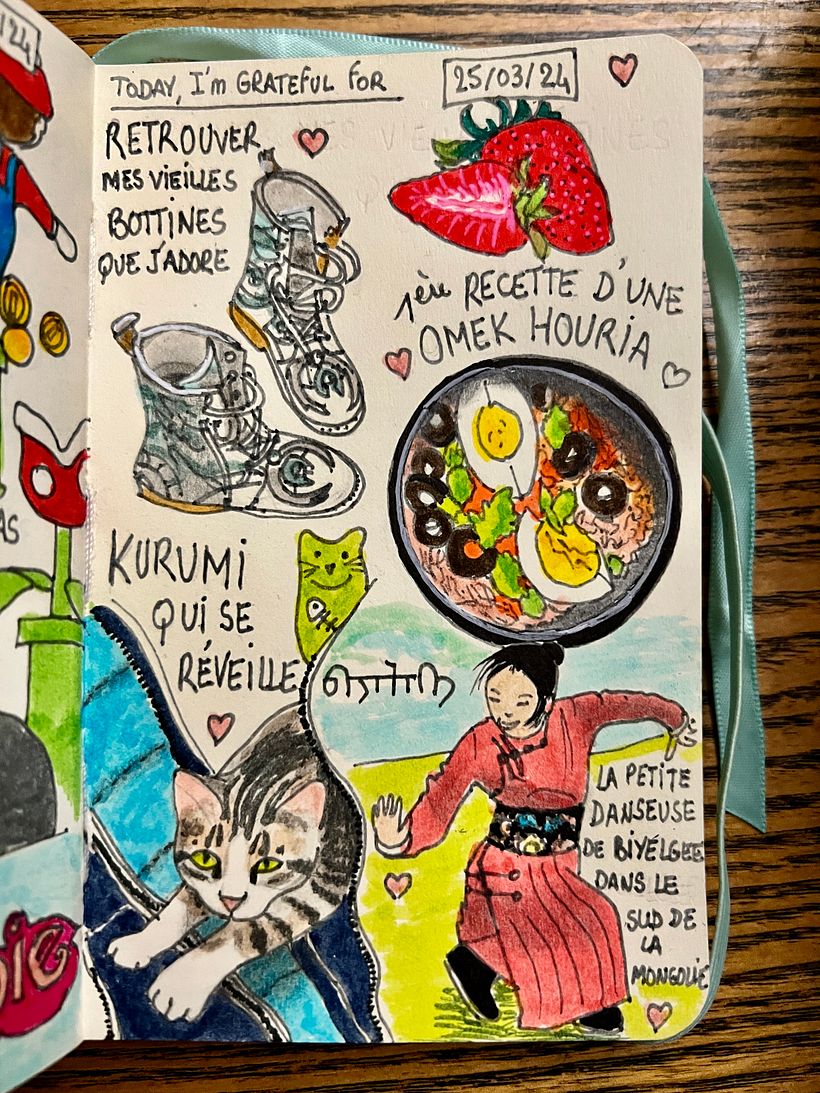 TODAY, I'm GRATEFUL FOR
25/03/24
RETROUVER
MES VIEILLES
BOTTINES
QUE J'ADORE
1ère RECETTE D'UNE
OMEK HOURIA
KURUMI
QUI SE
RÉVEILLE
LA PETITE
DANSEUSE
DE BIYÉLGEE
DANS LE
SUD DE
LA
MONGOLIE